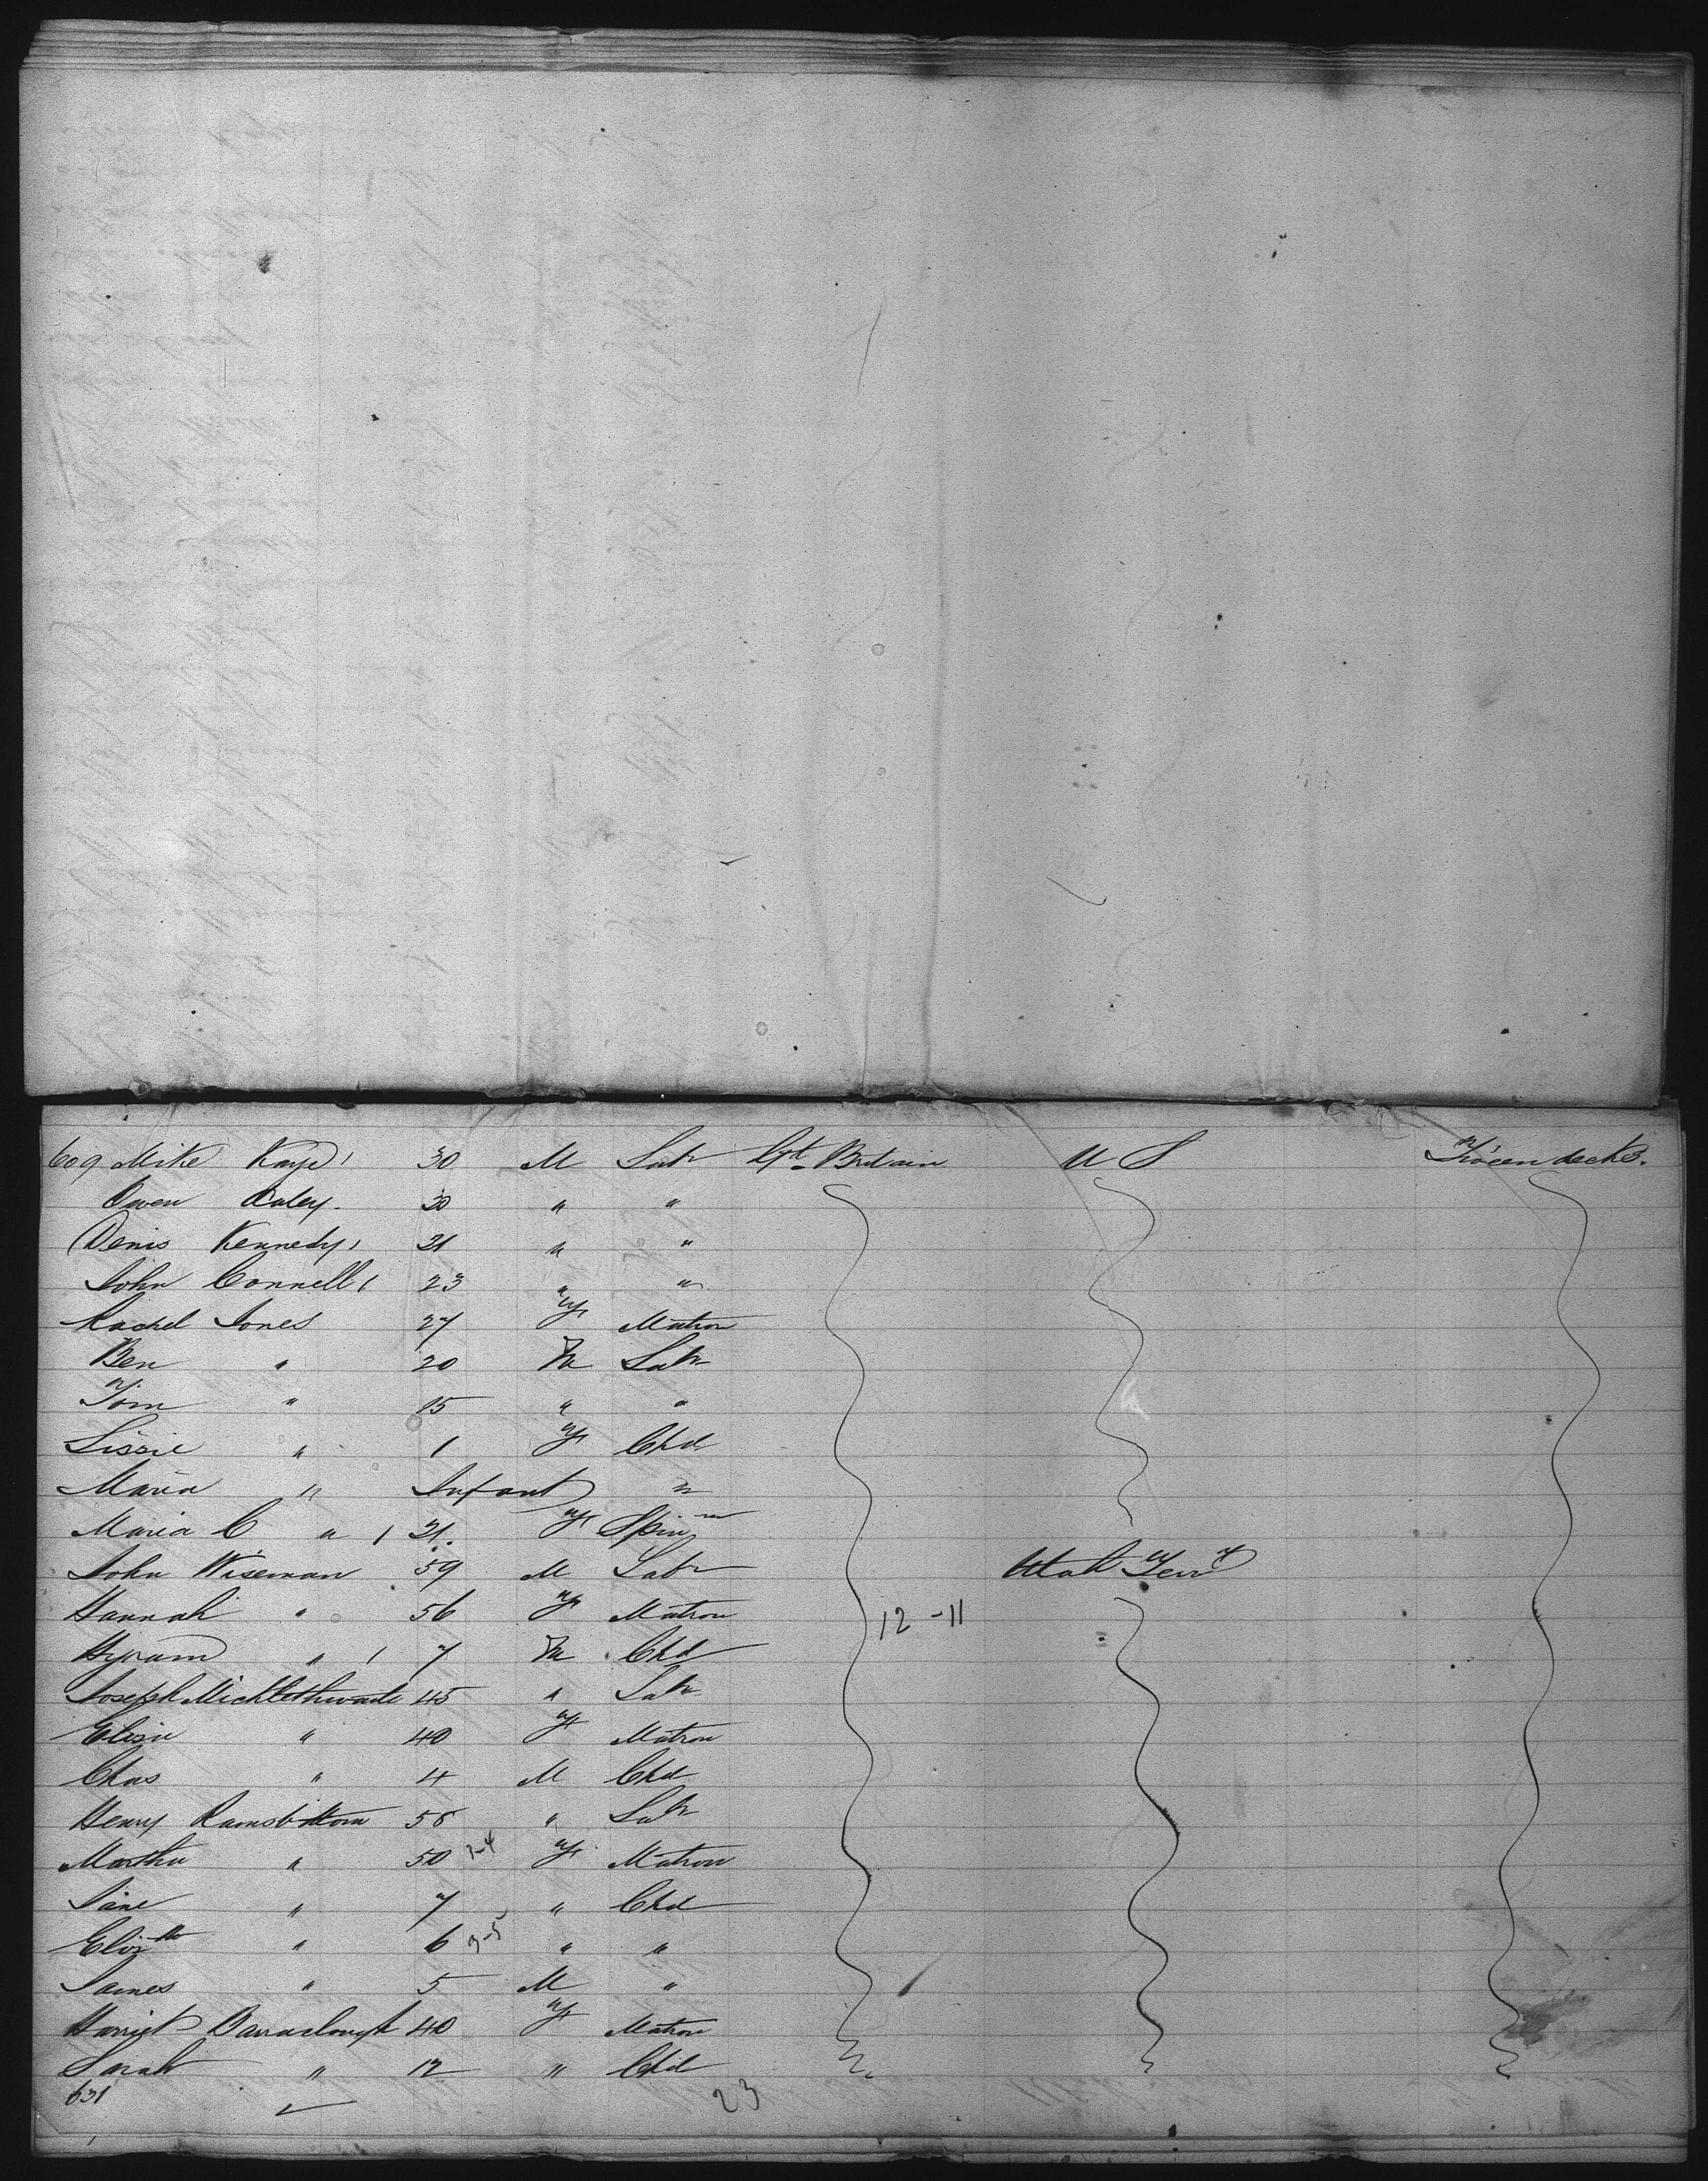 609 Mike Kaye 30 M Labr Gt. Britain U S Tween decks.
Owen Daley. 30 " "
Denis Kennedy 21 " "
John Connell 23 " "
Rachel Jones 27 F Matron
Ben " 20 M Labr
Tom " 15 " "
Lissie " 1 F Chd
Maria " Infant "
Maria C " 21. F Spinr
John Wiseman 59 M Labr Utah Terry
Hannah " 56 F Matron 12-11
Hyram " 7 M Chd
Joseph Micklethwaite 45 " Labr
Elisa " 40 F Matron
Chas " 4 M Chd
Henry Ramsbottom 58 " Labr
Martha " 50 3-4 F Matron
Jane " 7 " Chd
Elizth " 6 3-5 " "
James " 5 M "
Harriet Barraclough 40 F Matron
Sarah " 12 " Chd
631 23